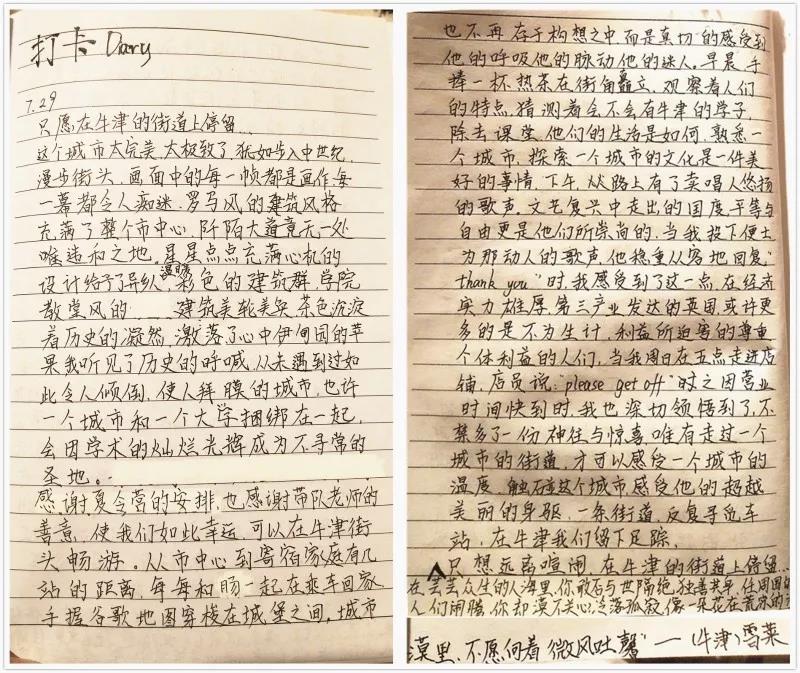 打卡 Diary
7.29
只愿在牛津的街道上停留...
这个城市太完美太极致了,犹如步入中世纪,
漫步街头,画面中的每一帧都是画作,每
一幕都令人痴迷,罗马风的建筑风格
充满了整个市中心,阡陌大道竟无一处
唯违和之地,星星点点充满心机的
设计给予了异纵 温暖 彩色的建筑群,学院
教堂风的......建筑美轮美奂,茶色沉淀
着历史的凝然,激落了心中伊甸园的苹
果我听见了历史的呼喊,从未遇到过如
此令人倾倒,使人拜膜的城市,也许
一个城市和一个大学捆绑在一起,
会因学术的灿烂光辉成为不寻常的
圣地。
感谢夏令营的安排,也感谢带队老师的
善意,使我们如此幸运,可以在牛津街
头畅游。从市中心到寄宿家庭有几
站的距离,每每和肠一起在乘车回家,
手握谷歌地图穿梭在城堡之间,城市
也不再存于构想之中,而是真切的感受到
他的呼吸他的脉动他的迷人。早晨手
捧一杯热茶在街角矗立,观察着人们
的特点,猜测着会不会有牛津的学子,
除去课堂,他们的生活是如何,熟悉一
个城市,探索一个城市的文化是一件美
好的事情,下午,从路上有了卖唱人悠扬
的歌声,文艺复兴中走出的国度,平等与
自由更是他们所崇尚的,当我投下便士
为那动人的歌声,他稳重从容地回复"
thank you"时,我感受到了这一点,在经济
实力雄厚,第三产业发达的英国,或许更
多的是不为生计,利益所迫害的尊重
个体利益的人们,当我周日在五点走进店
铺,店员说:"please get off"时之因营业
时间快到时,我也深切领悟到了,不
禁多了一份神往与惊喜,唯有走过一个
城市的街道,才可以感受一个城市的
温度,触碰这个城市感受他的超越
美丽的身躯,一条街道,反复寻觅车
站,在牛津我们留下足踪,
只想远离喧闹,在牛津的街道上停留...
在芸芸众生的人海里,你敢否与世隔绝,独善其身,任周围的
人们闹腾,你却漠不关心,冷落孤寂,像一朵花在荒凉的沙
漠里,不愿向着微风吐馨"——(牛津)雪莱